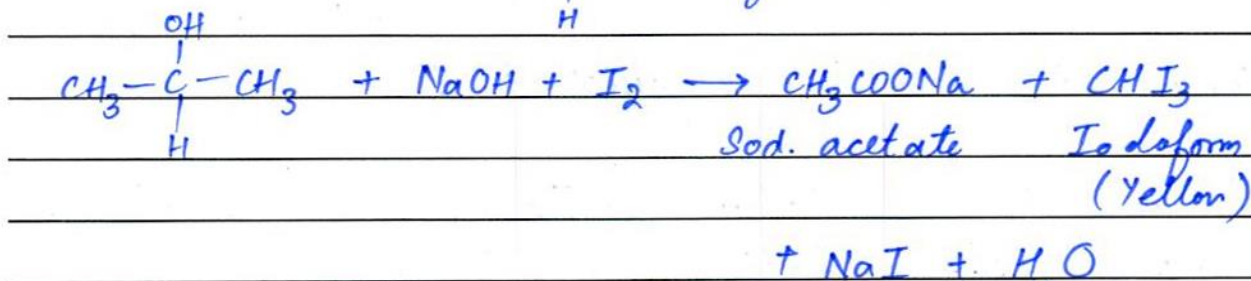 H
OH
CH₃-C-CH₃ + NaOH + I₂ → CH₃COONa + CHI₃
H
Sod. acetate Iodoform
(Yellow)
+ NaI + H O